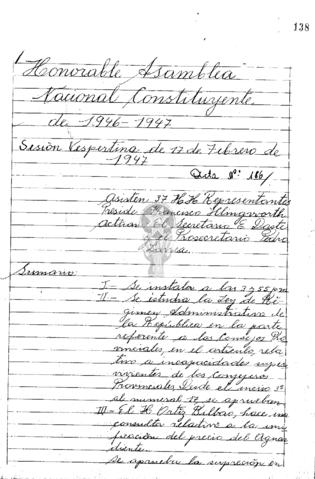 138
Honorable Asamblea
Nacional Constituyente
de 1946-1947
Sesión Vespertina de 12 de Febrero de
1947
Acta Nº: 186/
Asisten 37 H.H. Representantes
Preside Francisco Illingworth
Actúan El Secretario E. Daste
el Prosecretario Pedro
Sumario
I - Se instala a las 3 y 55 p.m
II - Se estudia la Ley de Ré
gimen Administrativo de
la República en la parte
referente a los Consejos Pro
vinciales, en el artículo rela
tivo a incapacidades
de los Consejeros
Provinciales. Desde el inciso 3º
al numeral 12 se aprueban
III - El H. Ortiz Bilbao, hace una
consulta relativo a la uni
ficación del precio del Aguar
diente.
Se aprueba la supresión en